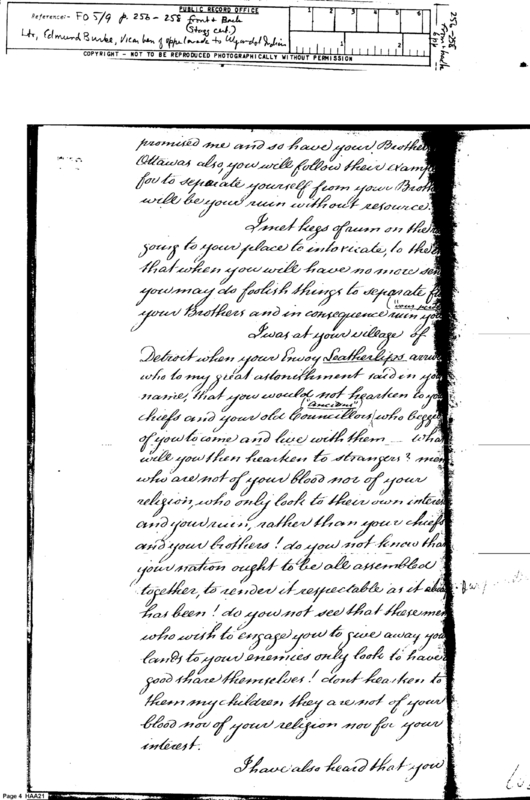 PUBLIC RECORD OFFICE
Reference:- FO 5/9 p. 256 - 258 front + back
Ltr, Edmund Burke, Vicar to Wyandot Indians
COPYRIGHT - NOT TO BE REPRODUCED PHOTOGRAPHICALLY WITHOUT PERMISSION
1 2 3 4 5 6
1 2
promised me and so have your Brother
Ottawas also, you will follow their examp
for to separate yourself from your Broth
will be your ruin without resource.
I met kegs of rum on the
going to your place to intoxicate, to the
that when you will have no more sen
you may do foolish things to separate f
your Brothers and in consequence ruin you
I was at your village of
Detroit when your Envoy Leatherlips arriv
who to my great astonishment said in you
name, that you would not hearken to yo
("anciens")
chiefs and your old Councillors, who begg
of you to come and live with them — wha
will you then hearken to strangers? men
who are not of your blood nor of your
religion, who only look to their own interes
and your ruin, rather than your chiefs
and your brothers! do you not know tha
your nation ought to be all assembled
together, to render it respectable as it
has been! do you not see that these men
who wish to engage you to give away you
lands to your enemies only look to have
good share themselves! dont hearken to
them my children they are not of your
blood nor of your religion nor for your
interest.
I have also heard that you
Page 4 HAA21